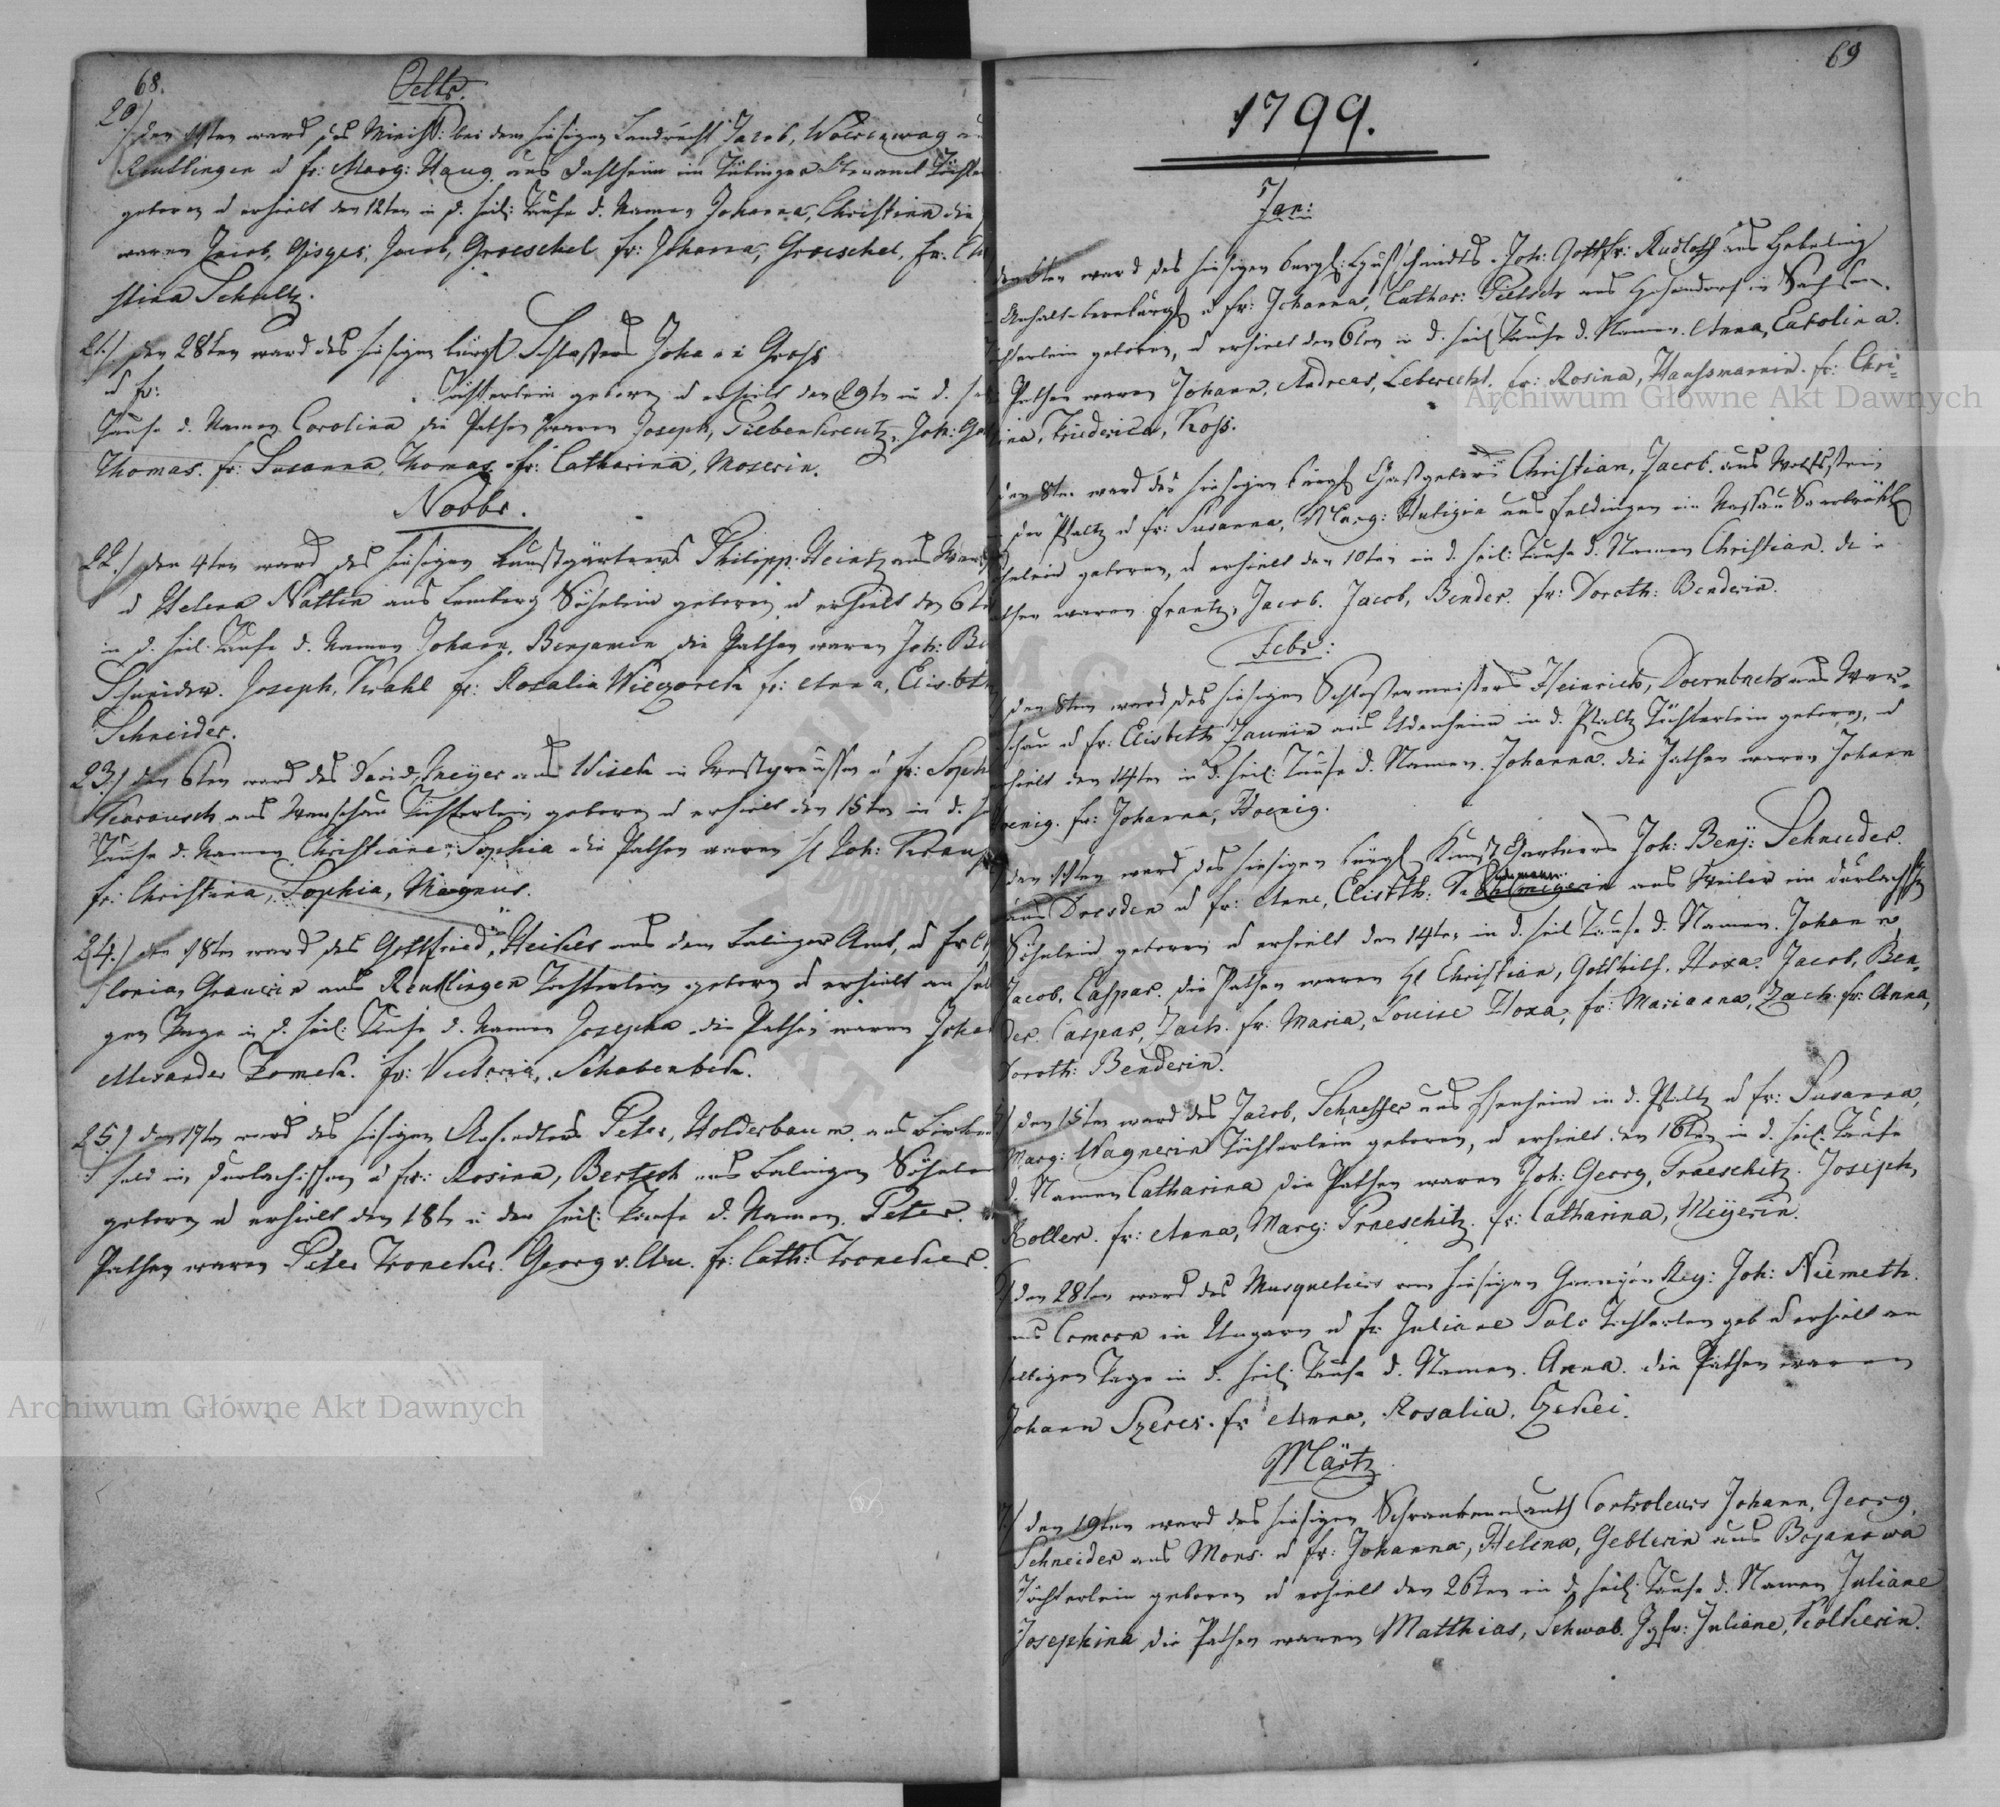 68.
Octbr.
20.) den 11ten ward des hiesigen Jacob,
Reutlingen u fr: Marg: Haug aus Dahlheim im Tübinger Töchter
geboren u erhielt den 12ten in d. heil: Taufe d. Namen Johanna, Christina die
waren Jacob, Gisges, Jacob, Groeschel fr: Johanna, Groeschel, fr: Chri
stina Schultz.
21.) den 28ten ward des hiesigen bürgl. Schlossers Johann Gross
u fr: Töchterlein geboren u erhielt den 29tn in d.
Taufe d. Namen Carolina die Pathen waren Joseph, Siebenkreutz, Joh: Got
Thomas. fr: Susanna, Thomas. fr: Catharina, Moserin.
Novbr.
22.) den 4ten ward des hiesigen Kunstgärtners Philipp Heintz aus
u Helena Nattin aus Lemberg Söhnlein geboren u erhielt den 6te
in d. heil. Taufe d. Namen Johann, Benjamin die Pathen waren Joh: Be
Schneider. Joseph, Krahl fr: Rosalia Wiegoreck fr: Anna, Elisbth
Schneider.
23.) den 6ten ward des David, Meyer aus Wisch in Westpreussen u fr: Soph
aus Warschau Töchterlein geboren u erhielt den 15ten in d.
Taufe d. Namen Christiane, Sophia die Pathen waren H Joh:
fr: Christina, Sophia, Magnus.
24.) den 18ten ward des Gottfried, Heicker aus dem Balinger Amt, u fr
aus Reutlingen Töchterlein geborn u erhielt an sel
gen Tage in d. heil: Taufe d. Namen Josepha die Pathen waren Joha
Alexander Tomeck. fr: Victoria, Schabenbeck.
25.) den 17ten ward des hiesigen Peter, Holderbaum aus
feld im Durlachischen u fr: Rosina, Bertsch aus Balingen Söhnlein
geborn u erhielt den 18tn in der heil: Taufe d. Namen Peter.
Pathen waren Peter Kronecker. Georg v. Au. fr: Cath: Kronecker.
69
1799.
Jan:
den 6ten ward des hiesigen bürgl: Hufschmidts Joh: Gottfr: Rudloff aus
Anhalt-bernburg u fr: Johanna, Cathar: Pietsch aus Hohendorf in Sachsen
chterlein geboren, u erhielt den 6ten in d. heil Taufe d. Namen Anna, Carolina.
Pathen waren Johann, Andreas, Leberecht. fr: Rosina, Haussmannin. fr: Chri=
ina, Friederica, Koss.
den 8ten ward des hiesigen bürgl Gastgebers Christian, Jacob. aus Wolfstein
der Pfaltz u fr: Susanna, Marg: Hutigin aus Feldingen in Nassau Sarbrükk
hnlein geboren, u erhielt den 10ten in d. heil: Taufe d. Namen Christian. die
athen waren Frantz, Jacob. Jacob, Bender. fr: Doroth: Benderin.
Febr:
den 8ten ward des hiesigen Schlossermeisters Heinrich, aus War=
schau u fr: Elisbeth Jaunin aus Udenheim in d. Pfaltz Töchterlein geboren, u
rhielt den 14ten in d. heil: Taufe d. Namen Johanna. die Pathen waren Johann
oenig. fr: Johanna, Hoenig.
den 11ten ward des hiesigen bürgl Kunst Gärtners Joh: Benj: Schneider.
aus Dresden u fr: Anne, Elisbth: aus Weiler im Durlachsch
Söhnlein geboren u erhielt den 14ten in d. heil Taufe d. Namen Johann
Jacob, Caspar. die Pathen waren H Christian, Gotthilf. Hoxa. Jacob, Ben=
der. Caspar, Zach. fr: Maria, Louise Hoxa, fr: Marianna, Zach. fr: Anna,
Doroth: Benderin.
den 15ten ward des Jacob, Schaeffer aus Essenheim in d. Pfaltz u fr: Susanna,
Marg: Wagnerin Töchterlein geboren, u erhielt den 16ten in d. heil: Taufe
d. Namen Catharina die Pathen waren Joh: Georg, Praeschitz. Joseph,
Roller. fr: Anna, Marg: Praeschitz. fr: Catharina, Meijerin.
den 28ten ward des Musquetiers vom hiesigen Reg: Joh: Niemeth
aus Comorn in Ungarn u fr Juliane Palo Töchterlen geb u erhielt an
selbigen Tage in d. heil: Taufe d. Namen. Anna. die Pathen waren
Johann Szeres. fr Anna, Rosalia, Czekei.
Märtz
den 19ten ward des hiesigen Controleurs Johann, Georg,
Schneider aus Mons. u fr: Johanna, Helena, Geblerin aus Bojanowa
Töchterlein geboren u erhielt den 26ten in d. heil. Taufe d. Namen Juliane
Josephina die Pathen waren Matthias, Schwab. Jgfr: Juliane, Kolkerin.
Archiwum Główne Akt Dawnych
Archiwum Główne Akt Dawnych